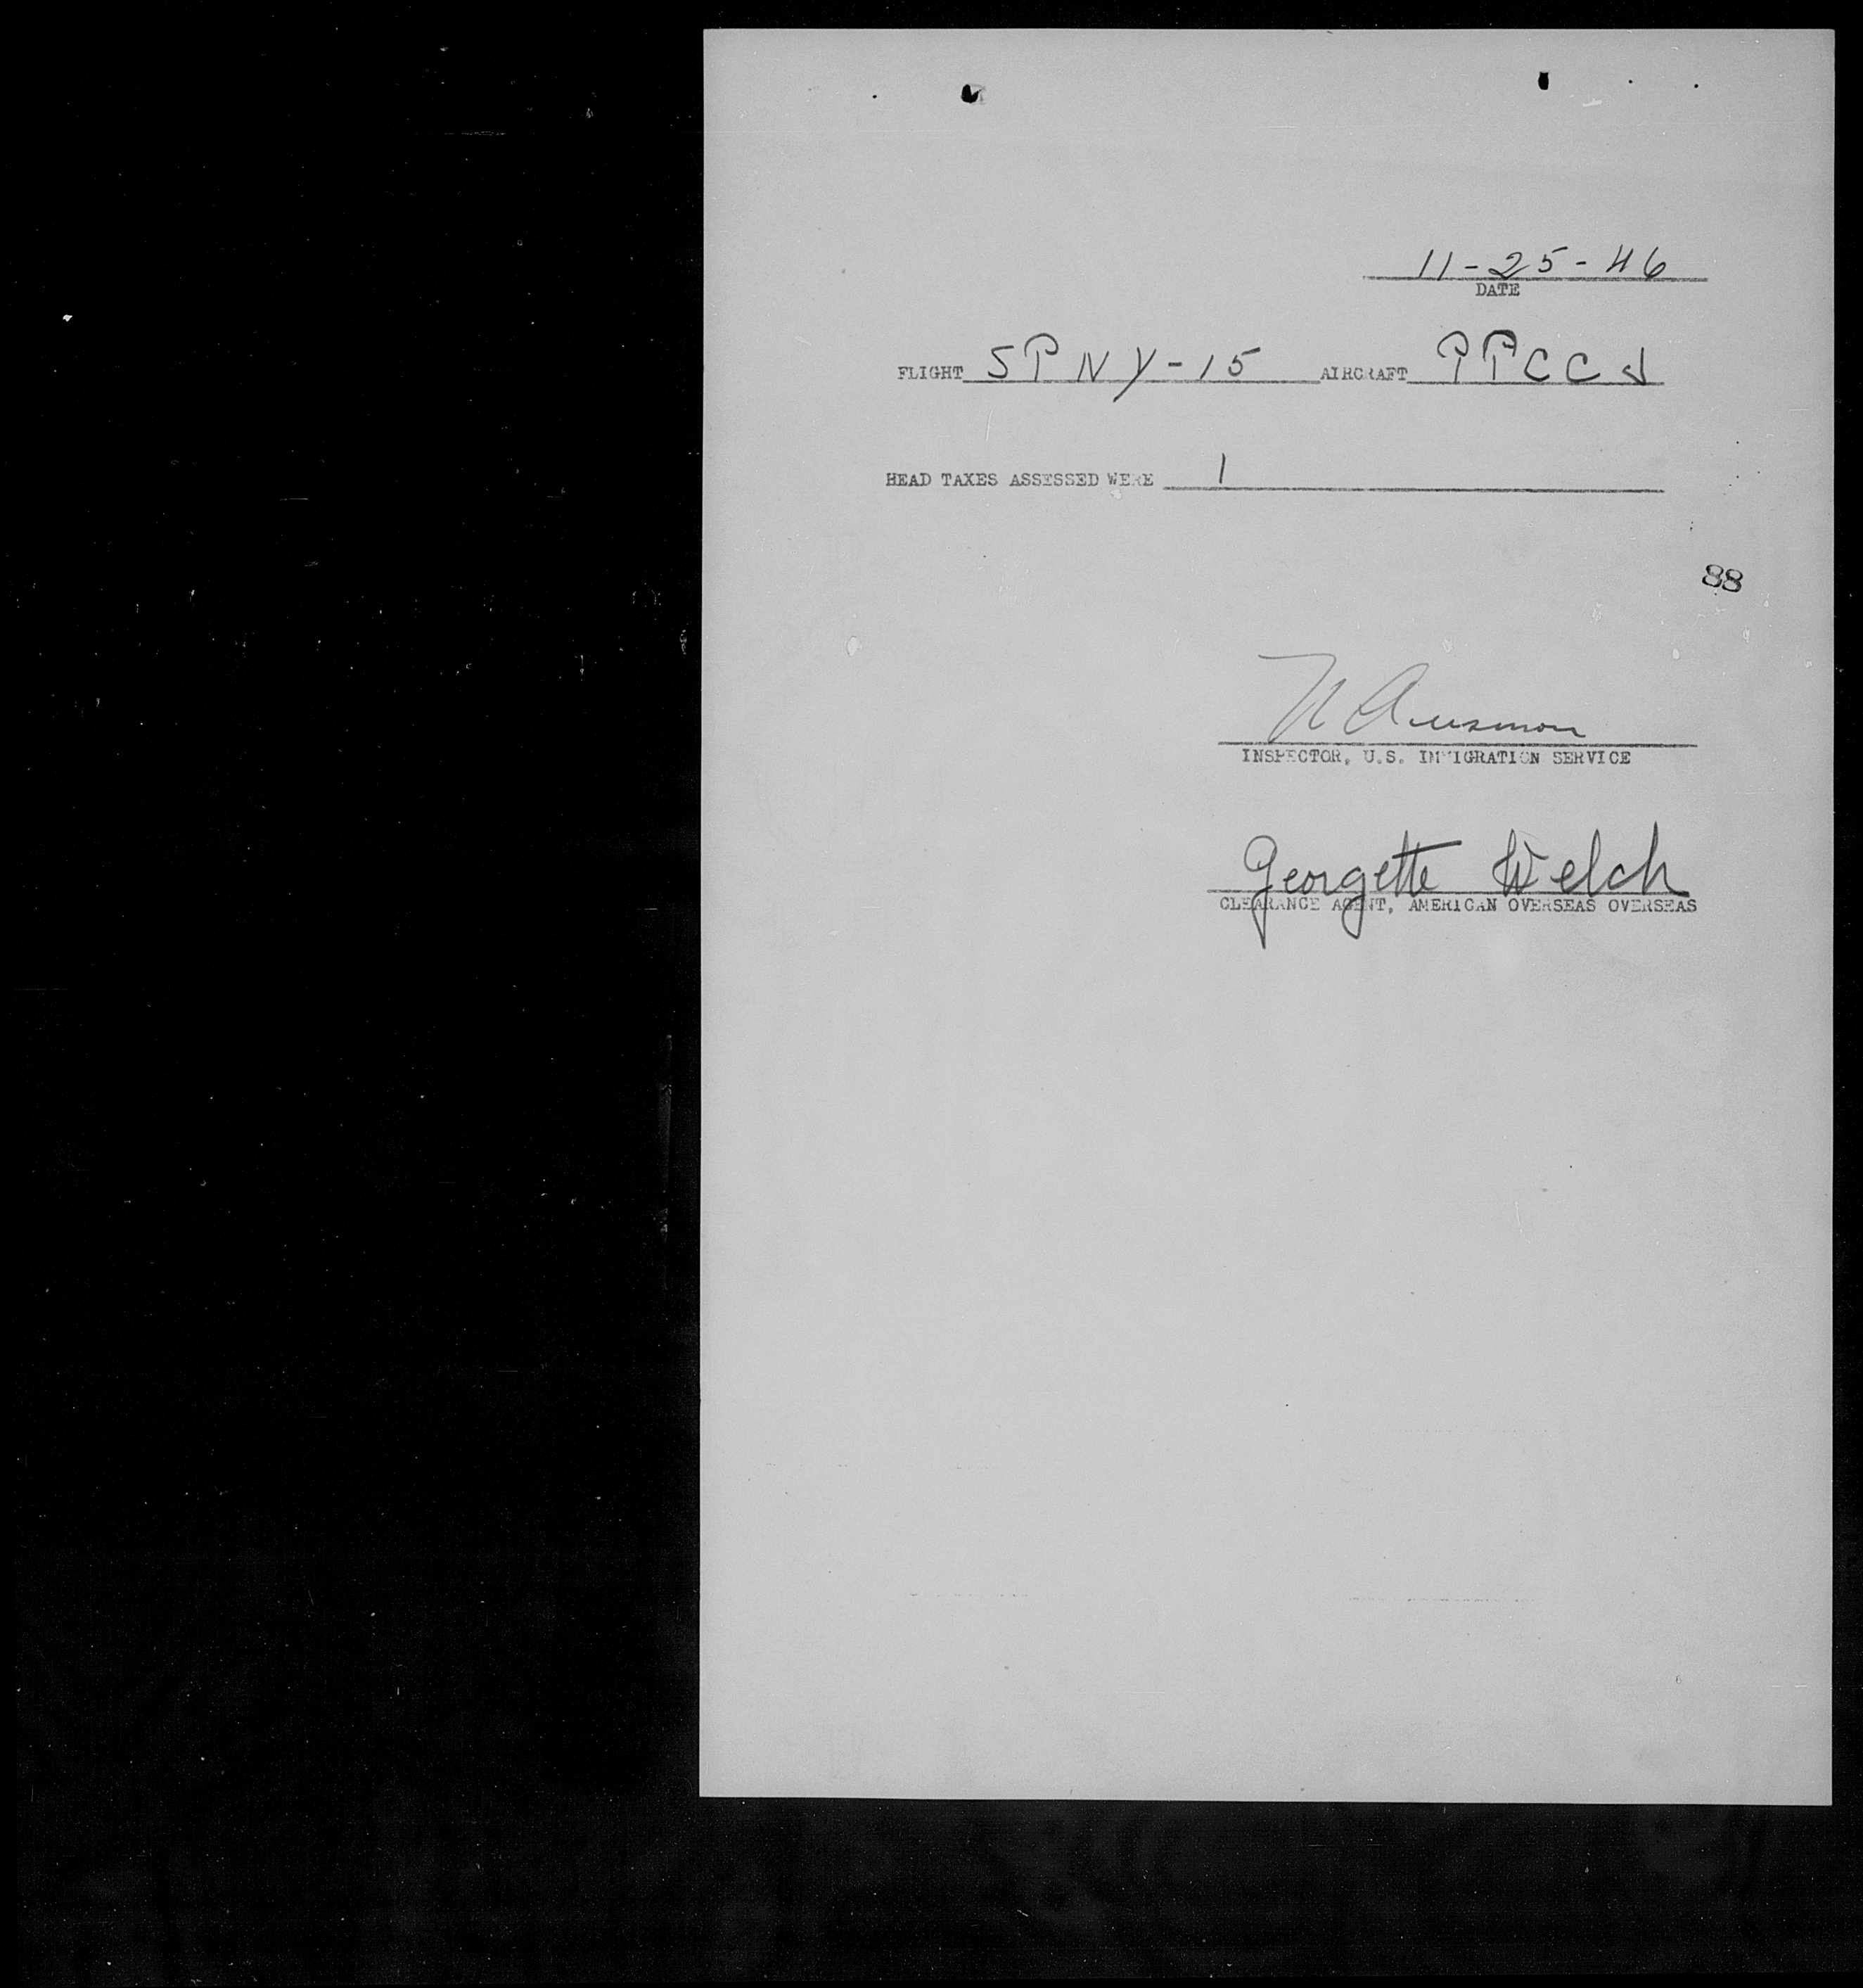 11-25-46
DATE
FLIGHT SPNY-15 AIRCRAFT PPCCJ
HEAD TAXES ASSESSED WERE 1
88
INSPECTOR, U.S. IMMIGRATION SERVICE
Georgette Welch
CLEARANCE AGENT, AMERICAN OVERSEAS OVERSEAS